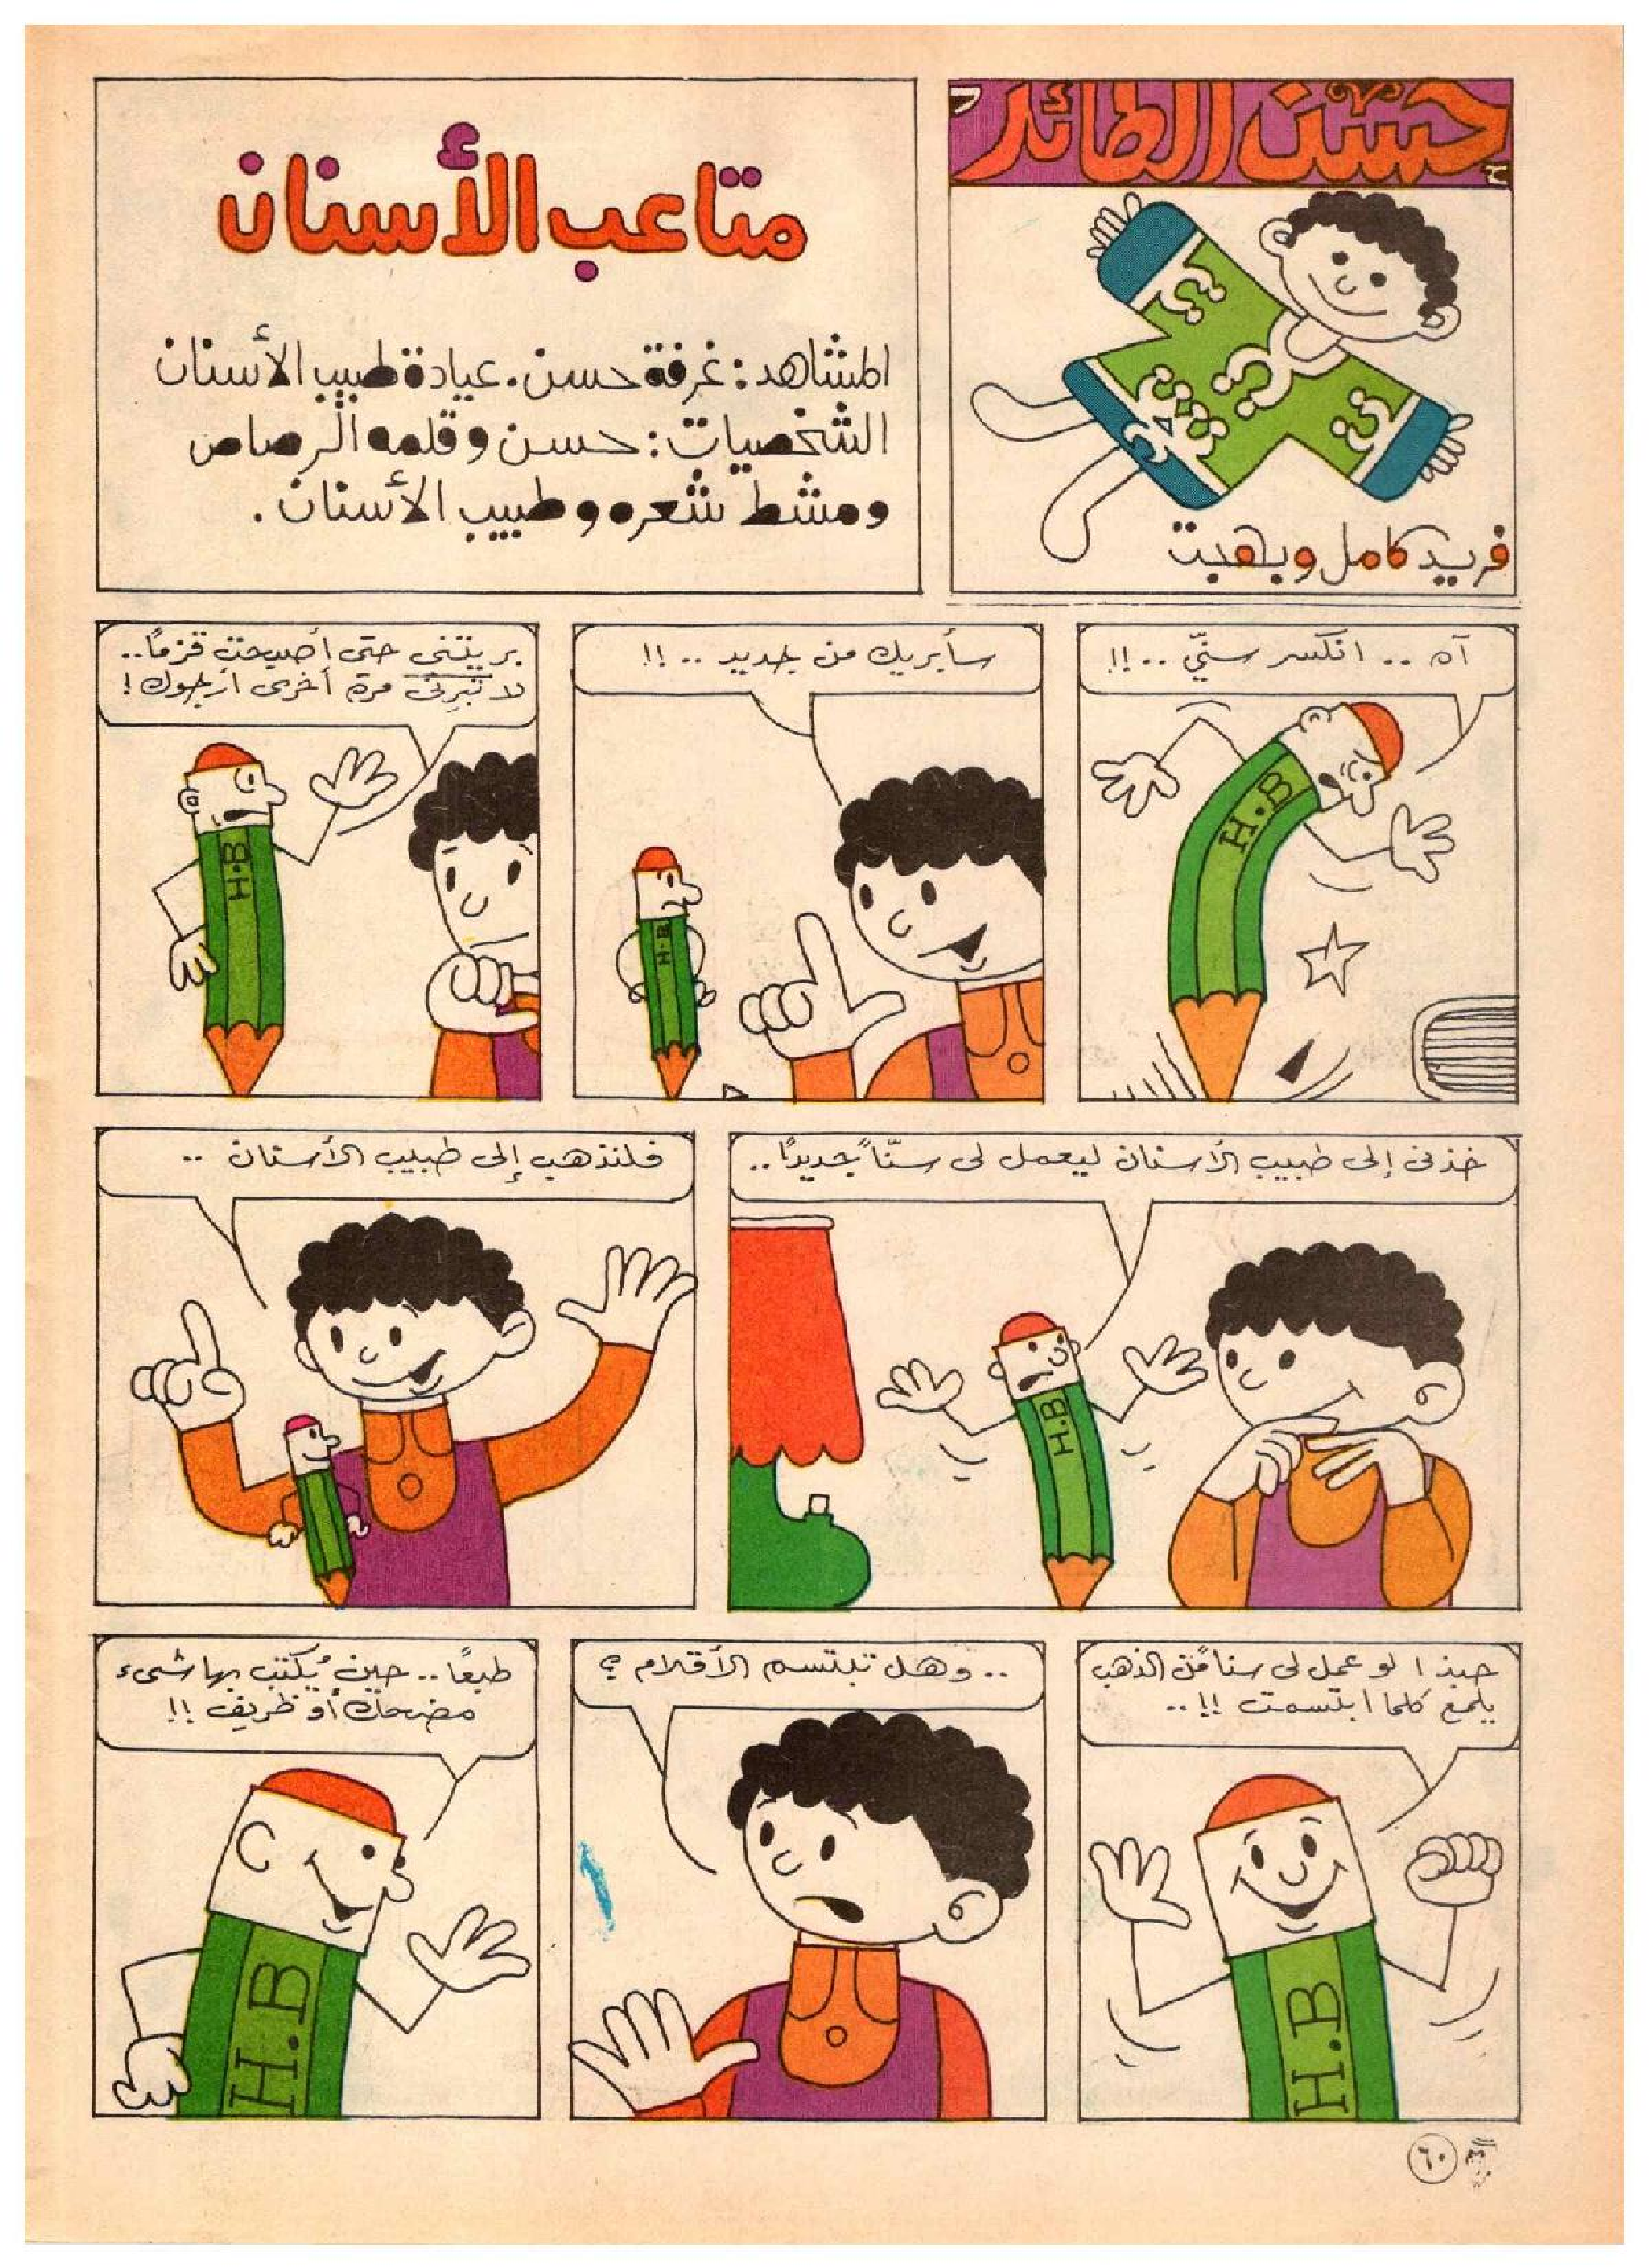 حسن الطائر
فريد كامل وبهجت
متاعب الأسنان
المشاهد: غرفة حسن. عيادة طبيب الأسنان
الشخصيات: حسن وقلمه الرصاص
ومشط شعره وطبيب الأسنان.
آه .. انكسر سنّي ..!!
H.B
سأبريك من جديد ..!!
H.B
بريتني حتى أصبحت قزمًا..
لا تبرني مرة أخرى أرجوك!
H.B
خذني إلى طبيب الأسنان ليعمل لي سنّاً جديدًا..
H.B
فلنذهب إلى طبيب الأسنان ..
حبذا لو عمل لي سنا من الذهب
يلمع كلما ابتسمت !!..
H.B
.. وهل تبتسم الأقلام ؟
طبعًا.. حين يُكتب بها شيء
مضحك أو ظريف !!
H.B
٦٠